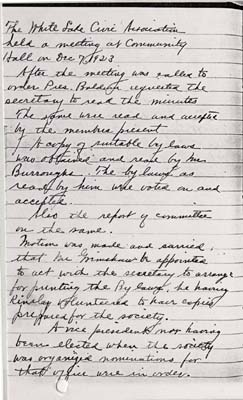 The White Side Civic Association
held a meeting at Community
Hall on Dec 7, 1923.
After the meeting was called to
order Pres. Baldwin requested the
secretary to read the minutes
The same were read and accepted
by the members present
A copy of suitable by laws
was obtained and read by Mr.
Burroughs. The by laws as
read by him were voted on and
accepted.
Also the report of committee
on the same.
Motion was made and carried
that Mr Grimshaw be appointed
to act with the secretary to arrange
for printing the By laws, he having
kindly volunteered to have copies
prepared for the society.
A vice president not having
been elected when the society
was organized nominations for
that office were in order.